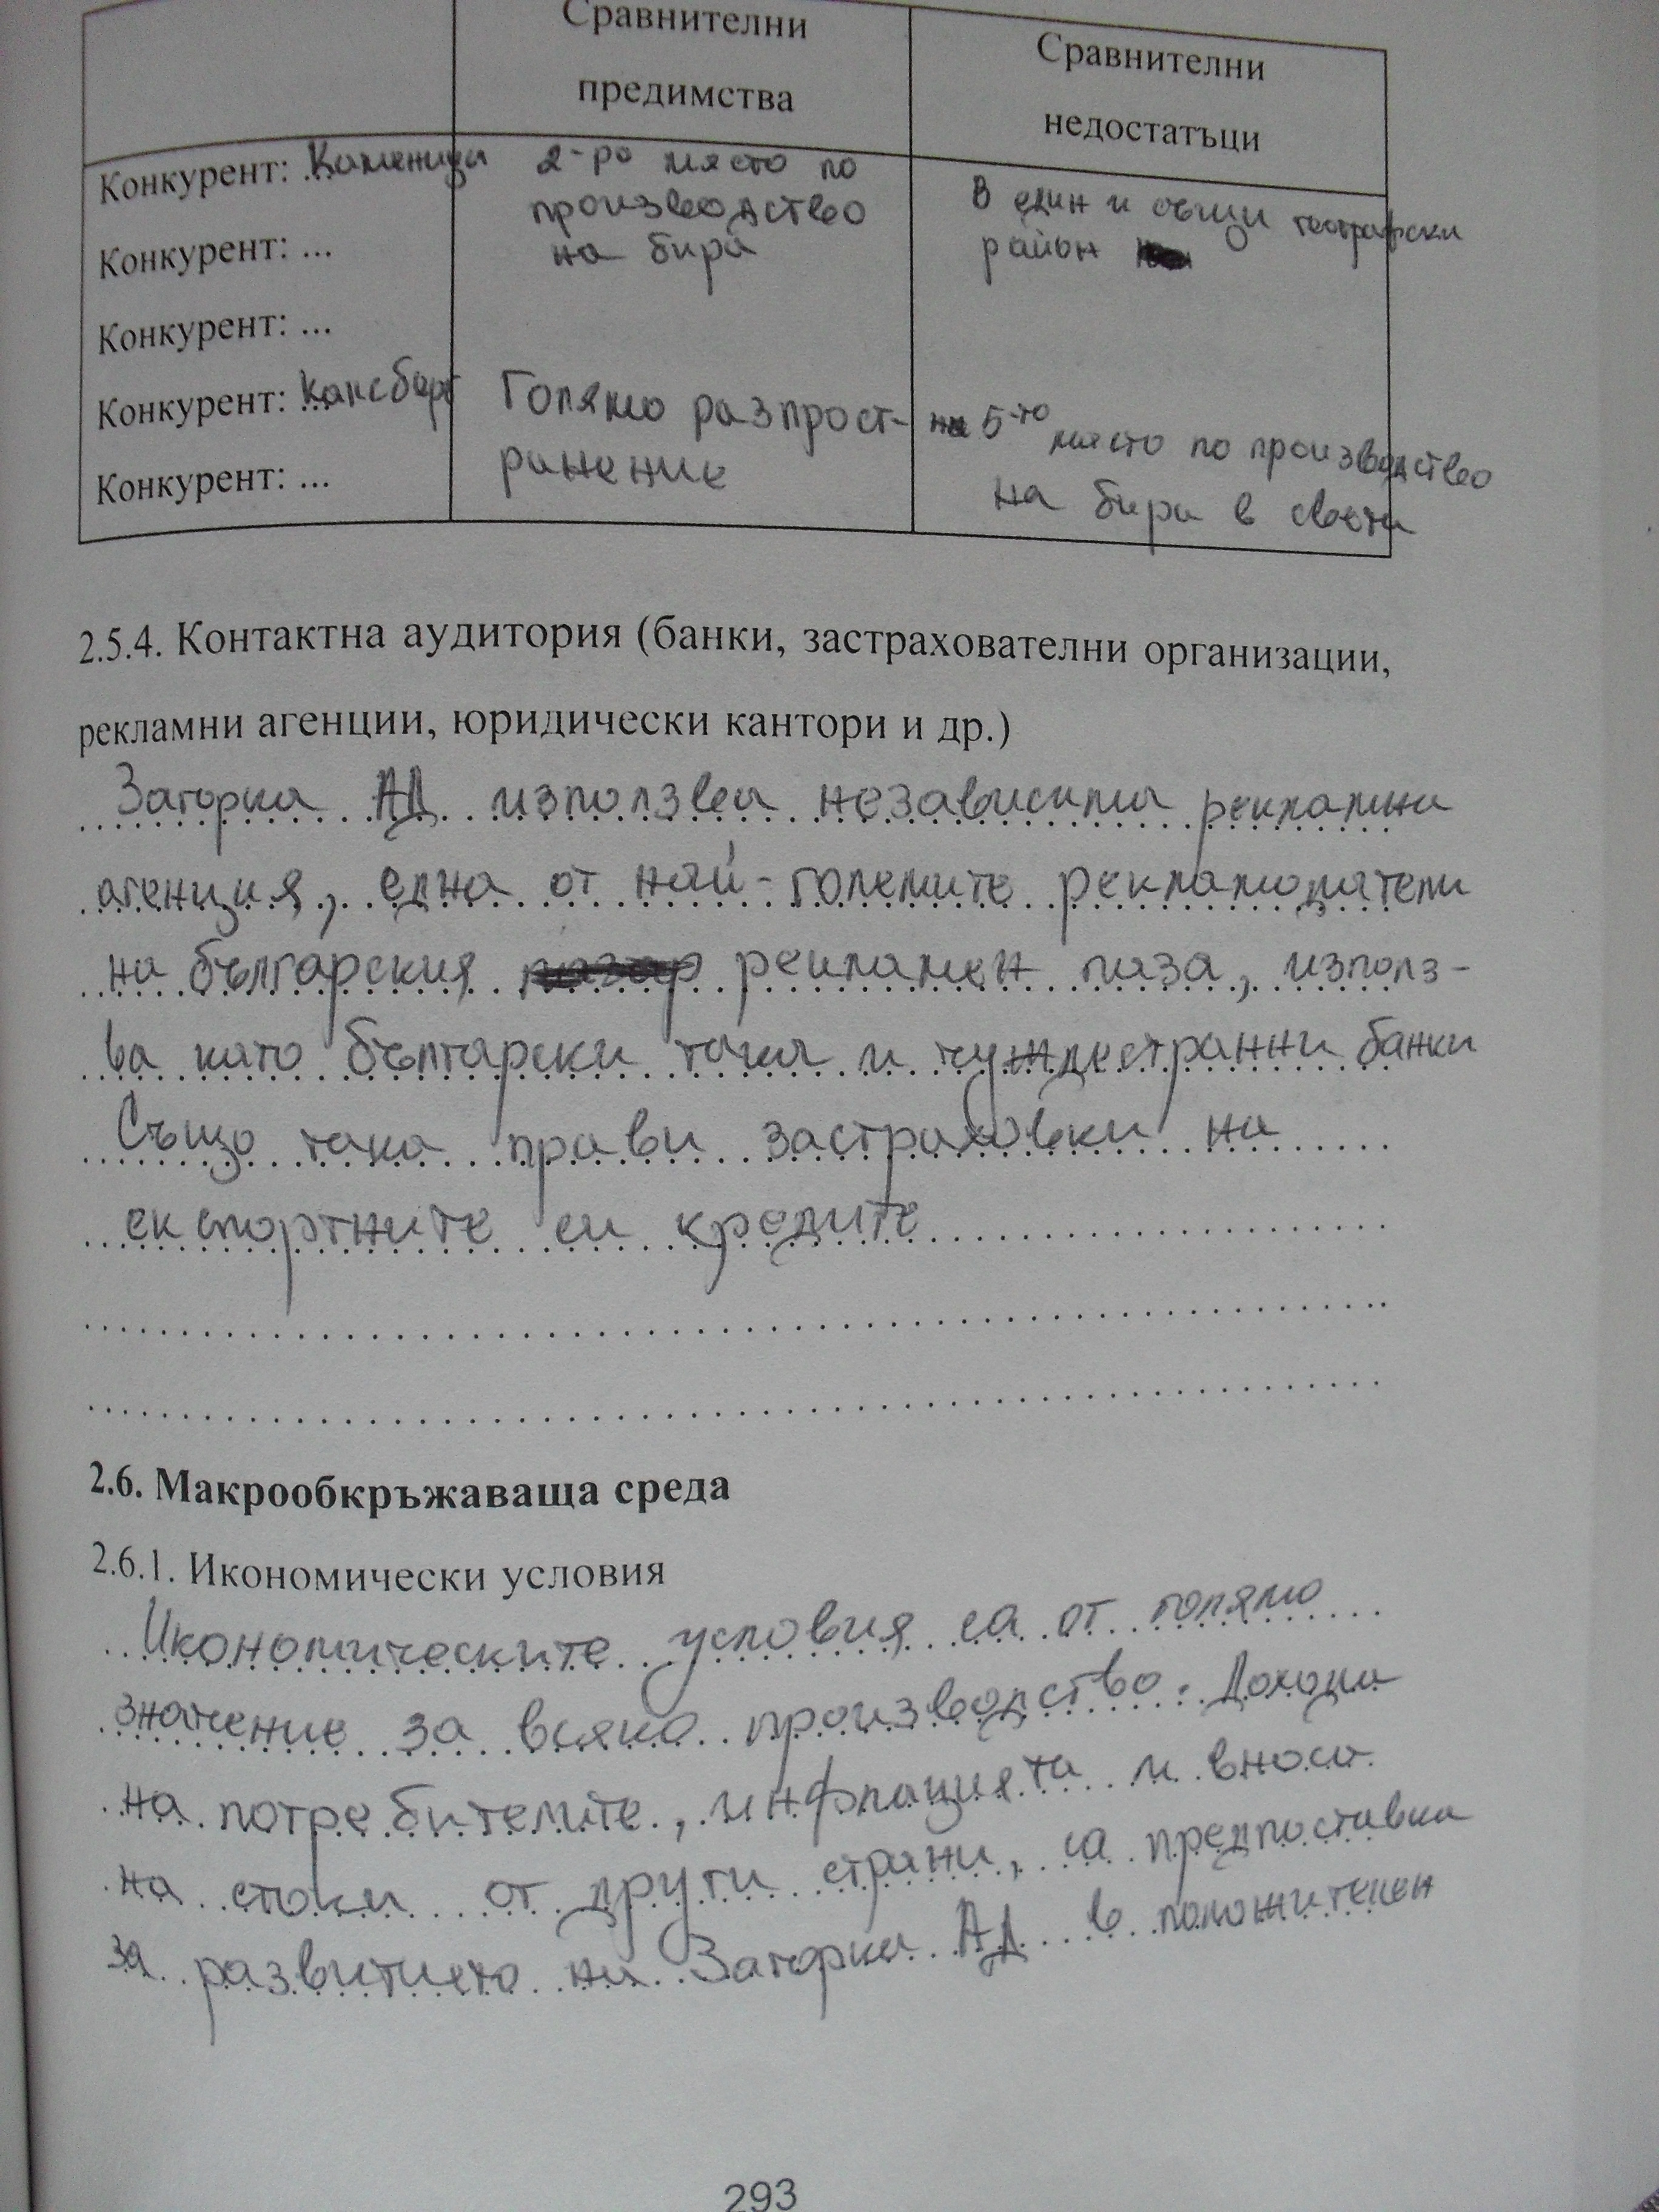 Сравнителни
предимства
Сравнителни
недостатъци
Конкурент: ... Каменица
2-ро място по
производство
на бира
В един и същи географски
район
Конкурент: ...
Конкурент: ...
Конкурент: ... Карсберг
Голямо разпрост-
ранение
на 5-то място по производство
на бира в света
Конкурент: ...
2.5.4. Контактна аудитория (банки, застрахователни организации,
рекламни агенции, юридически кантори и др.)
Загорка АД използва независима рекламна
агенция, една от най-големите рекламодатели
на българския рекламен паза, използ-
ва като български така и чуждестранни банки
Също така прави застраховки на
експортните си кредите
2.6. Макрообкръжаваща среда
2.6.1. Икономически условия
Икономическите условия са от голямо
значение за всяко производство. Дохода
на потребителите, инфлацията и внос
на стоки от други страни, са предпоставка
за развитието на Загорка АД в положителен
293